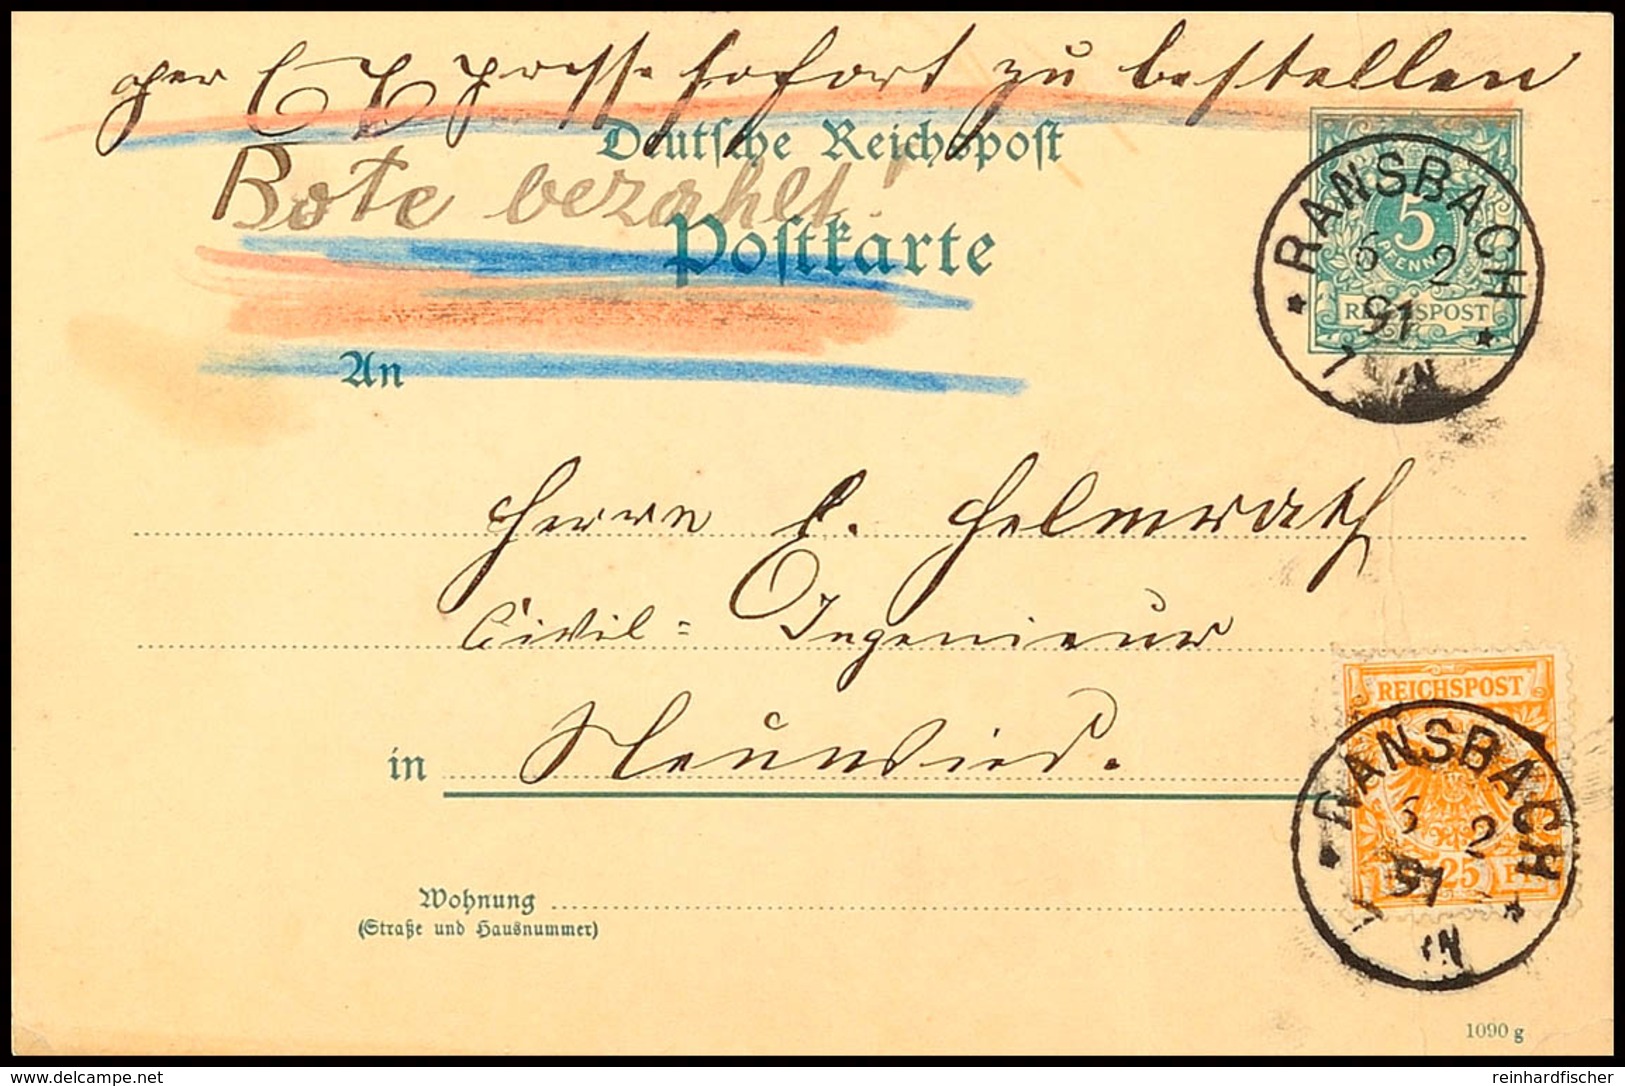 per Expresse sofort zu bestellen
Deutsche Reichspost
Bote bezahlt!
Postkarte
5
PFENNIG
REICHSPOST
RANSBACH
6 2
91
7 N
An
Herrn E. Helmrath
Civil= Ingenieur
in Neuwied.
REICHSPOST
25 PF
RANSBACH
6 2
91
N
Wohnung
(Straße und Hausnummer)
1090 g
delcampe.net
reinhardfischer